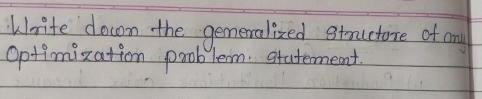 Write down the generalized structure of any
optimization problem. statement.